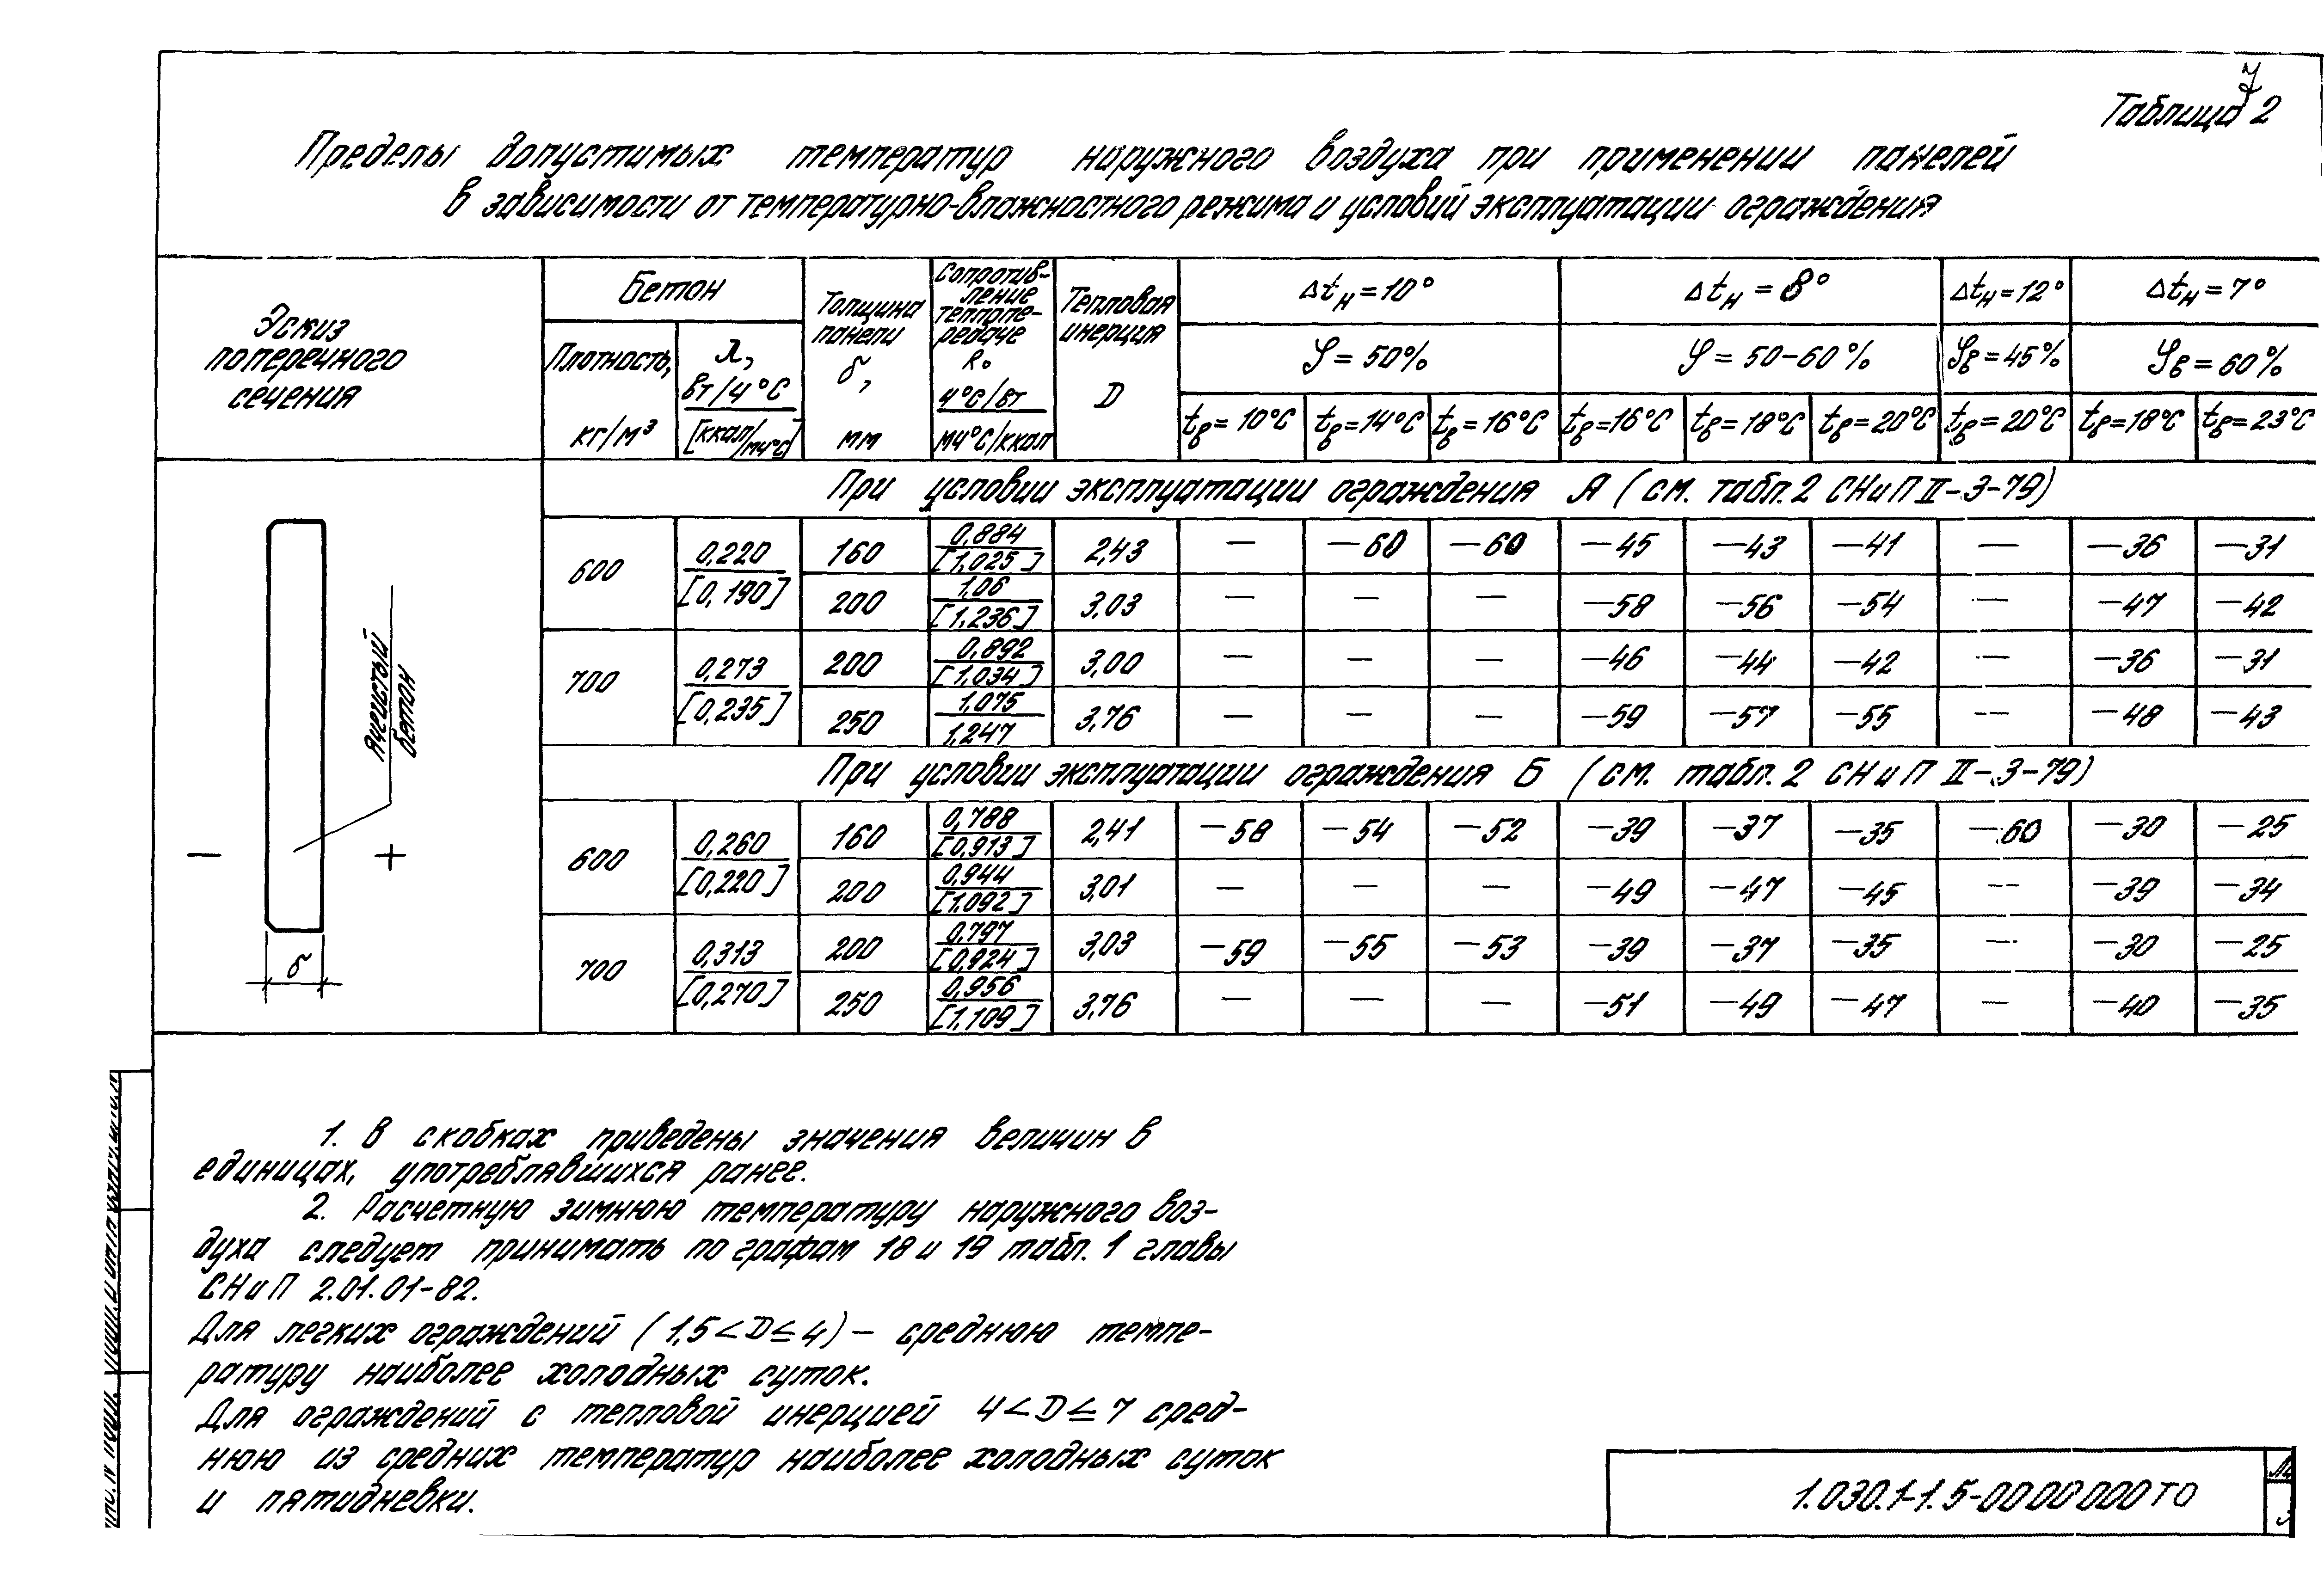 7
Таблица 2
Пределы допустимых температур наружного воздуха при применении панелей
в зависимости от температурно-влажностного режима и условий эксплуатации ограждения
Эскиз
поперечного
сечения
Бетон
Плотность,
кг/м³
λ,
вт/ч°С
[ккал/мч°С]
Толщина
панели
δ,
мм
Сопротив-
ление
теплопе-
редаче
R₀
ч°С/вт
мч°С/ккал
Тепловая
инерция
D
Δtн=10° Δtн=8° Δtн=12° Δtн=7°
φ=50% φ=50-60% φв=45% φв=60%
tв=10°С tв=14°С tв=16°С tв=16°С tв=18°С tв=20°С tв=20°С tв=18°С tв=23°С
При условии эксплуатации ограждения А (см. табл. 2 СНиП II-3-79)
600 0,220 [0,190] 160 0,884 [1,025] 2,43 — —60 —60 —45 —43 —41 — —36 —31
200 1,06 [1,236] 3,03 — — — —58 —56 —54 — —47 —42
700 0,273 [0,235] 200 0,892 [1,034] 3,00 — — — —46 —44 —42 — —36 —31
250 1,075 1,247 3,76 — — — —59 —57 —55 — —48 —43
При условии эксплуатации ограждения Б (см. табл. 2 СНиП II-3-79)
600 0,260 [0,220] 160 0,788 [0,913] 2,41 —58 —54 —52 —39 —37 —35 —60 —30 —25
200 0,944 [1,092] 3,01 — — — —49 —47 —45 — —39 —34
700 0,313 [0,270] 200 0,797 [0,924] 3,03 —59 —55 —53 —39 —37 —35 — —30 —25
250 0,956 [1,109] 3,76 — — — —51 —49 —47 — —40 —35
Ячеистый
бетон
— +
δ
1. В скобках приведены значения величин в
единицах, употреблявшихся ранее.
2. Расчетную зимнюю температуру наружного воз-
духа следует принимать по графам 18 и 19 табл. 1 главы
СНиП 2.01.01-82.
Для легких ограждений (1,5<D≤4) — среднюю темпе-
ратуру наиболее холодных суток.
Для ограждений с тепловой инерцией 4<D≤7 сред-
нюю из средних температур наиболее холодных суток
и пятидневки.
1.030.1-1.5-0000000ТО